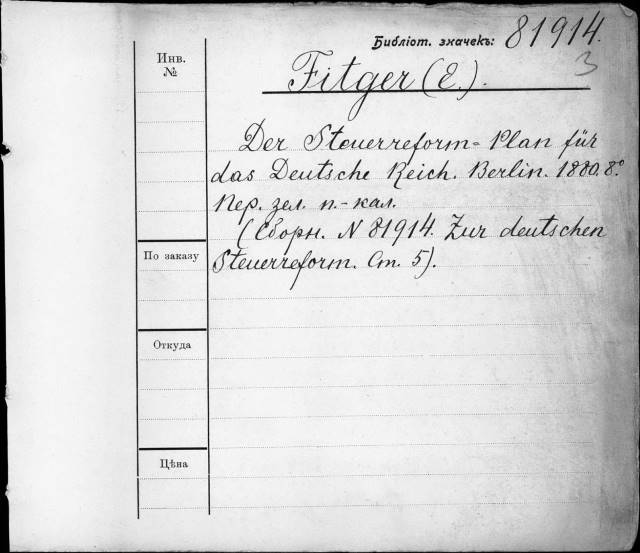 Библіот. значекъ: 81914.
3
Инв.
№
Fitger (E.).
Der Steuerreform-Plan für
das Deutsche Reich. Berlin. 1880. 8°
Пер. зел. п.-кал.
(Сборн. N 81914. Zur deutschen
По заказу
Steuerreform. Ст. 5).
Откуда
Цѣна